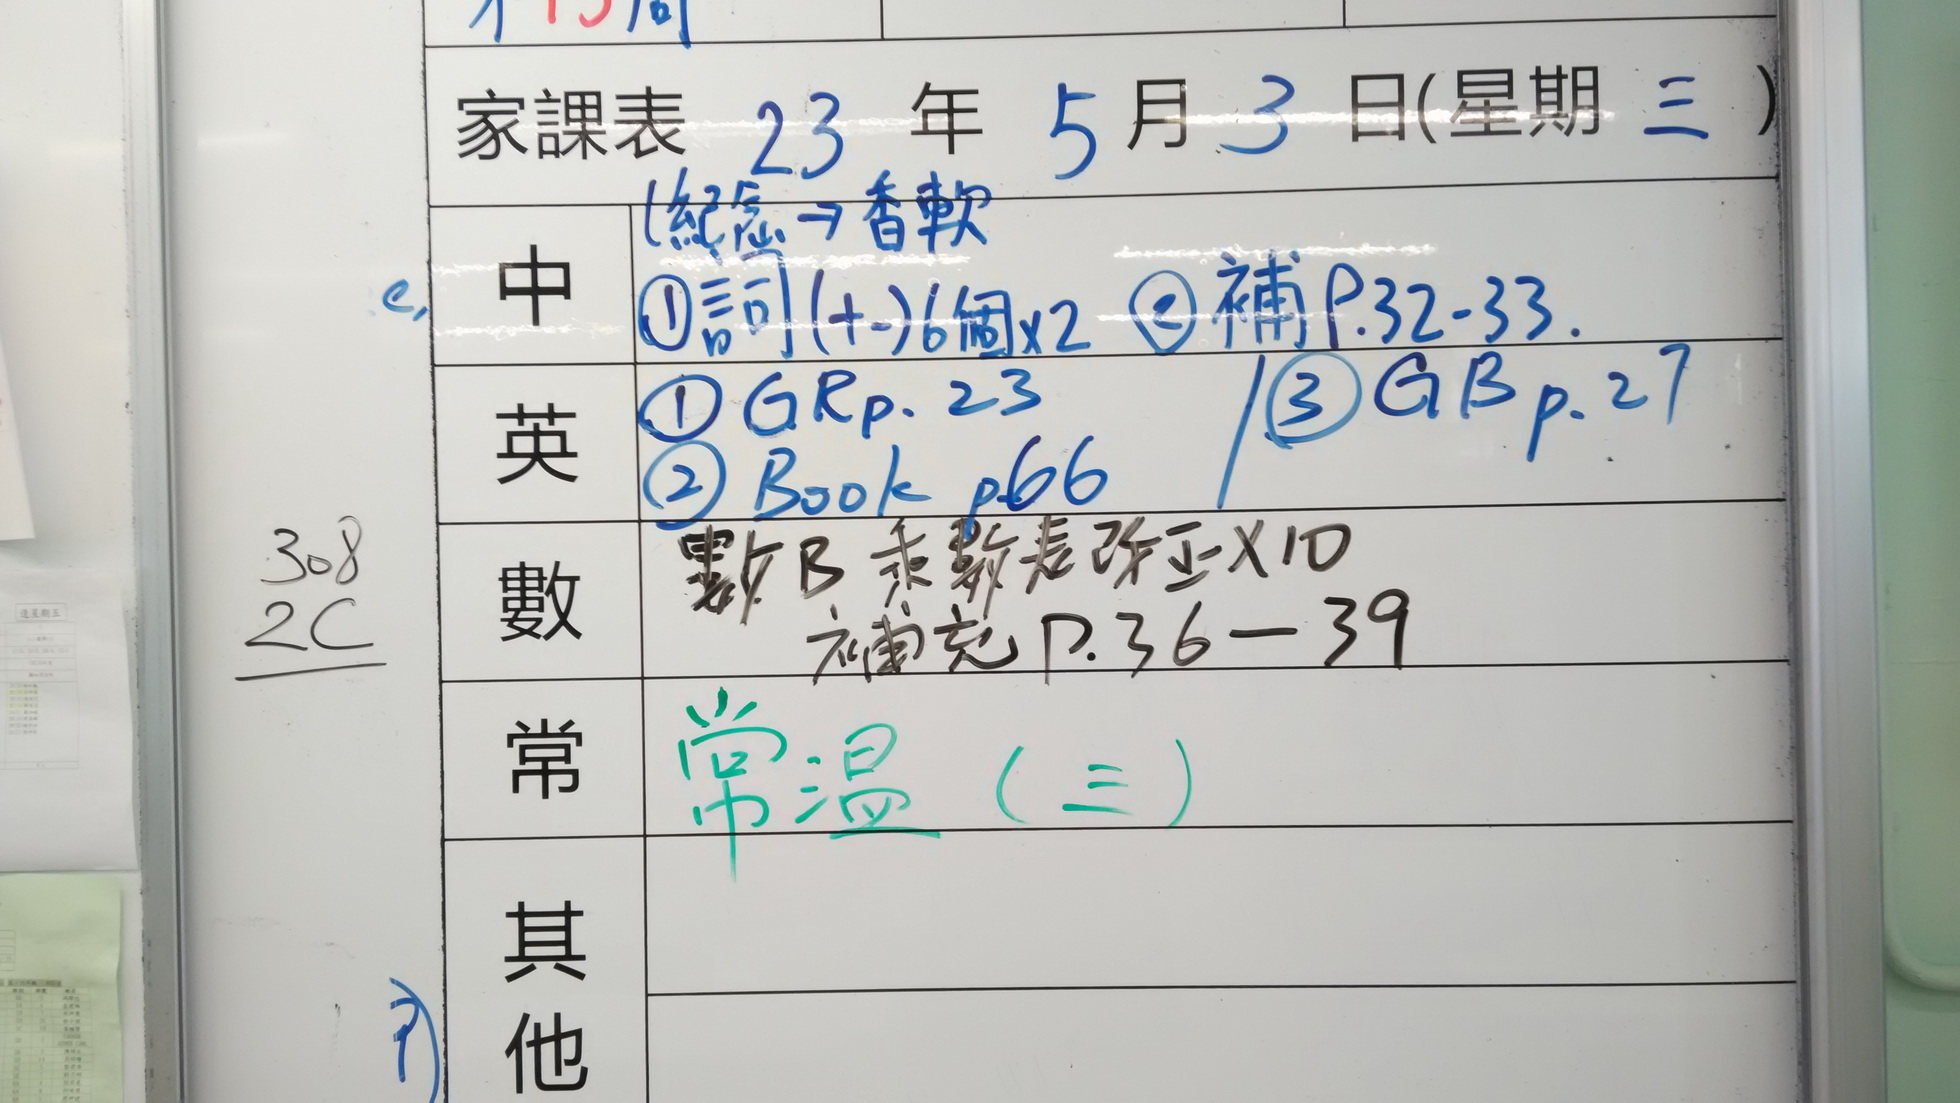 第13周
家課表 23 年 5 月 3 日(星期 三 )
(紀念→香軟
中 ①詞(十二)6個x2 ②補P.32-33.
英 ①GRp. 23 / ③GB p. 27
②Book p66
308
2C
數 數B 乘數表改正X10
補充P.36-39
常 常溫(三)
其他